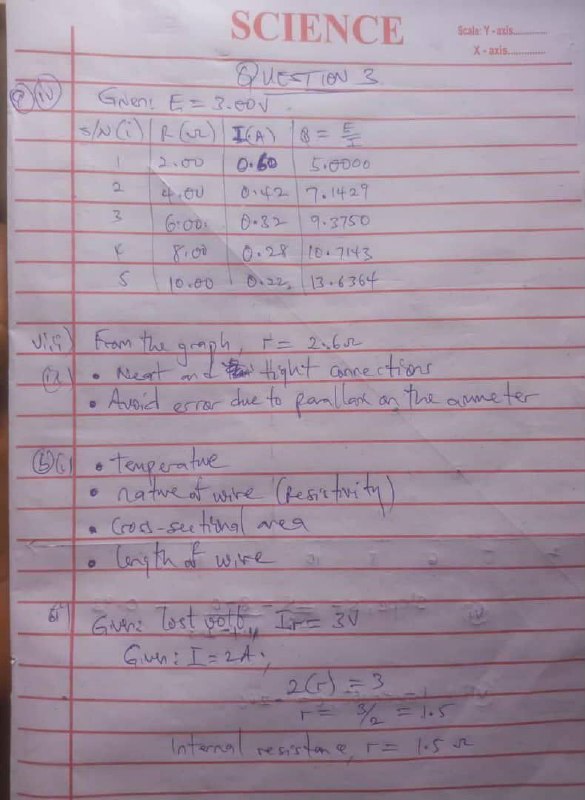 SCIENCE
Scale: Y - axis.............
X - axis..............
QUESTION 3
(a) (iv) Given: E = 3.00V.
S/N (i) R(Ω) I(A) B = E/I
1 2.00 0.60 5.0000
2 4.00 0.42 7.1429
3 6.00 0.32 9.3750
4 8.00 0.28 10.7143
5 10.00 0.22 13.6364
viii) From the graph, r = 2.6Ω
(ix) • Neat and tight connections
• Avoid error due to parallax on the ammeter
(b)(i) • temperature
• nature of wire (Resistivity)
• Cross-sectional area
• length of wire
ii) Given: "lost volt", Ir = 3V
Given: I = 2A,
2(r) = 3
r = 3/2 = 1.5
Internal resistance, r = 1.5 Ω